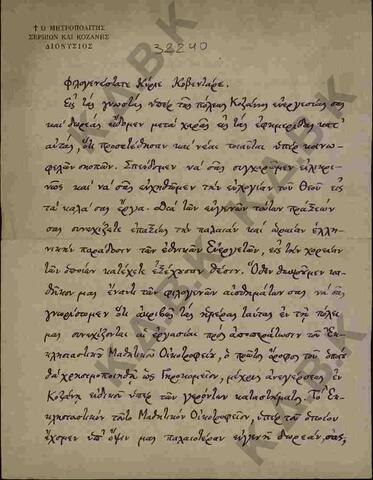 † Ο ΜΗΤΡΟΠΟΛΙΤΗΣ
ΣΕΡΒΙΩΝ ΚΑΙ ΚΟΖΑΝΗΣ
ΔΙΟΝΥΣΙΟΣ
32240
Φιλογενέστατε Κύριε Κοβεντάρε.
Εἰς τὰς γνωστὰς ὑπὲρ τῆς πόλεως Κοζάνης εὐεργεσίας σας
καὶ δωρεὰς εἴδομεν μετὰ χαρᾶς εἰς τὰς ἐφημερίδας κατ'
αὐτάς, ὅτι προσετέθησαν καὶ νέαι τοιαῦται ὑπὲρ κοινω-
φελῶν σκοπῶν. Σπεύδομεν νὰ σᾶς συγχαρῶμεν εἰλικρι-
νῶς καὶ νὰ σᾶς εὐχηθῶμεν τὴν εὐλογίαν τοῦ Θεοῦ εἰς
τὰ καλά σας ἔργα. Διὰ τῶν εὐγενῶν τούτων πράξεών
σας συνεχίζετε ἐπαξίως τὴν παλαιὰν καὶ ὡραίαν ἑλλη-
νικὴν παράδοσιν τῶν ἐθνικῶν Εὐεργετῶν, εἰς τὴν χορείαν
τῶν ὁποίων κατέχετε ἐξέχουσαν θέσιν. Ὅθεν θεωροῦμεν κα-
θῆκον μας ἔναντι τῶν φιλογενῶν αἰσθημάτων σας νὰ σᾶς
γνωρίσωμεν ὅτι ἀκριβῶς τὰς ἡμέρας ταύτας ἐν τῇ πόλει
μας συνεχίζονται αἱ ἐργασίαι πρὸς ἀποπεράτωσιν τοῦ Ἐκ-
κλησιαστικοῦ Μαθητικοῦ Οἰκοτροφείου, ὁ πρῶτος ὄροφος τοῦ ὁποίου
θὰ χρησιμοποιηθῇ ὡς Γηροκομεῖον, μέχρις ἀνεγέρσεως ἐν
Κοζάνῃ εἰδικοῦ ὑπὲρ τῶν γερόντων καταστήματος. Τὸ Ἐκ-
κλησιαστικὸν τοῦτο Μαθητικὸν Οἰκοτροφεῖον, ὑπὲρ τοῦ ὁποίου
ἔχομεν ὑπ' ὄψιν μας παλαιοτέραν εὐγενῆ δωρεάν σας,